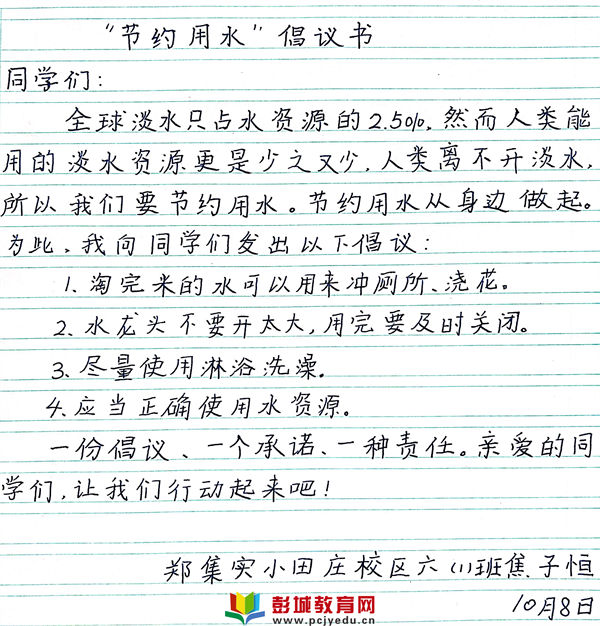 “节约用水”倡议书
同学们：
全球淡水只占水资源的2.5%，然而人类能
用的淡水资源更是少之又少，人类离不开淡水，
所以我们要节约用水。节约用水从身边做起。
为此，我向同学们发出以下倡议：
1、淘完米的水可以用来冲厕所、浇花。
2、水龙头不要开太大，用完要及时关闭。
3、尽量使用淋浴洗澡。
4、应当正确使用水资源。
一份倡议、一个承诺、一种责任。亲爱的同
学们，让我们行动起来吧！
郑集实小田庄校区六(1)班焦子恒
10月8日
彭城教育网
www.pcjyedu.cn